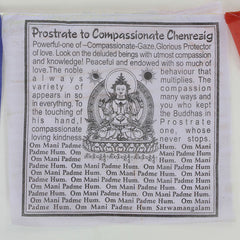 Prostrate to Compassionate Chenrezig
Powerful-one of ~Compassionate-Gaze, Glorious Protector
of love. Look on the deluded beings with utmost compassion
and knowledge! Peaceful and endowed with so much of
love. The noble behaviour that
always to multiplies. The
variety of compassion
appears in so many ways and
in everything. To you who kept
the touching of the Buddhas in
his hand, I Prostrate
compassionate one, whose
loving kindness never stops.
Om Mani Padme Hum. Om Mani
Om Mani Padme Hum. Om Mani Padme Hum.
Om Mani Padme Hum. Om Mani Padme Hum.
Om Mani Padme Hum. Om Mani Padme Hum.
Om Mani Padme Hum. Om Mani Padme Hum. Om Mani
Padme Hum. Om Mani Padme Hum. Om Mani Padme
Hum. Om Mani Padme Hum. Om Mani Padme Hum. Om Mani
Padme Hum. Om Mani Padme Hum Sarwamangalam